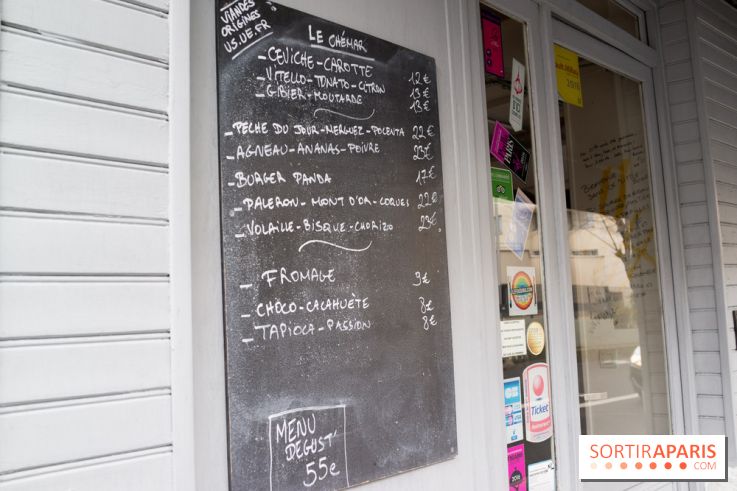 VIANDES
ORIGINES
US.UE.FR
LE CHÉMAR
- CEVICHE - CAROTTE 12€
- VITELLO - TONATO - CITRON 13€
- GIBIER - MOUTARDE 13€
- PÊCHE DU JOUR - MERGUEZ - POLENTA 22€
- AGNEAU - ANANAS - POIVRE 23€
- BURGER PANDA 17€
- PALERON - MONT D'OR - COQUES 22€
- VOLAILLE - BISQUE - CHORIZO 23€
- FROMAGE 9€
- CHOCO - CACAHUÈTE 8€
- TAPIOCA - PASSION 8€
MENU
DEGUST'
55€
Ticket
SORTIRAPARIS
.COM